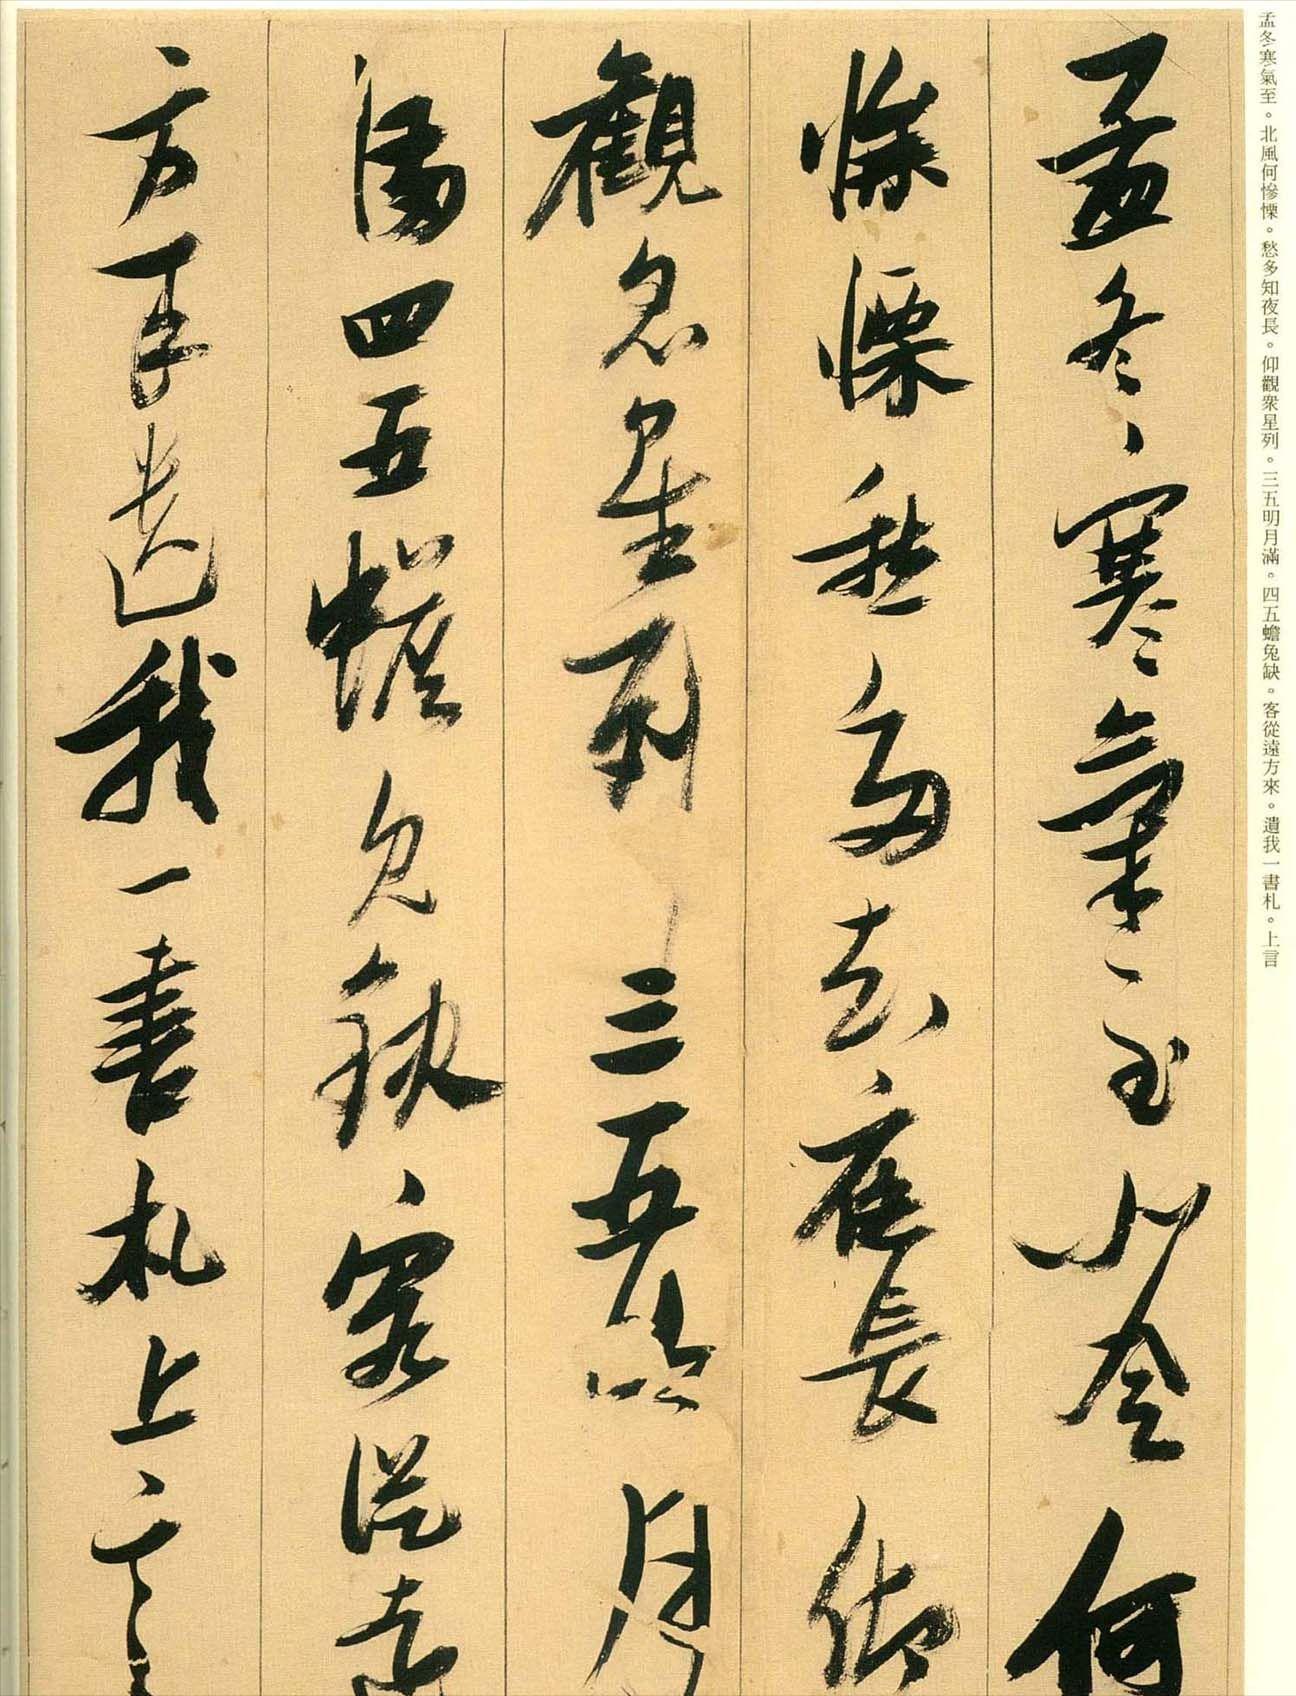 孟冬寒氣至。北風何慘慄。愁多知夜長。仰觀衆星列。三五明月滿。四五蟾兔缺。客從遠方來。遺我一書札。上言
孟冬寒氣至北風何
慘慄愁多知夜長仰
觀衆星列三五明月
滿四五蟾兔缺客從遠
方来遺我一書札上言